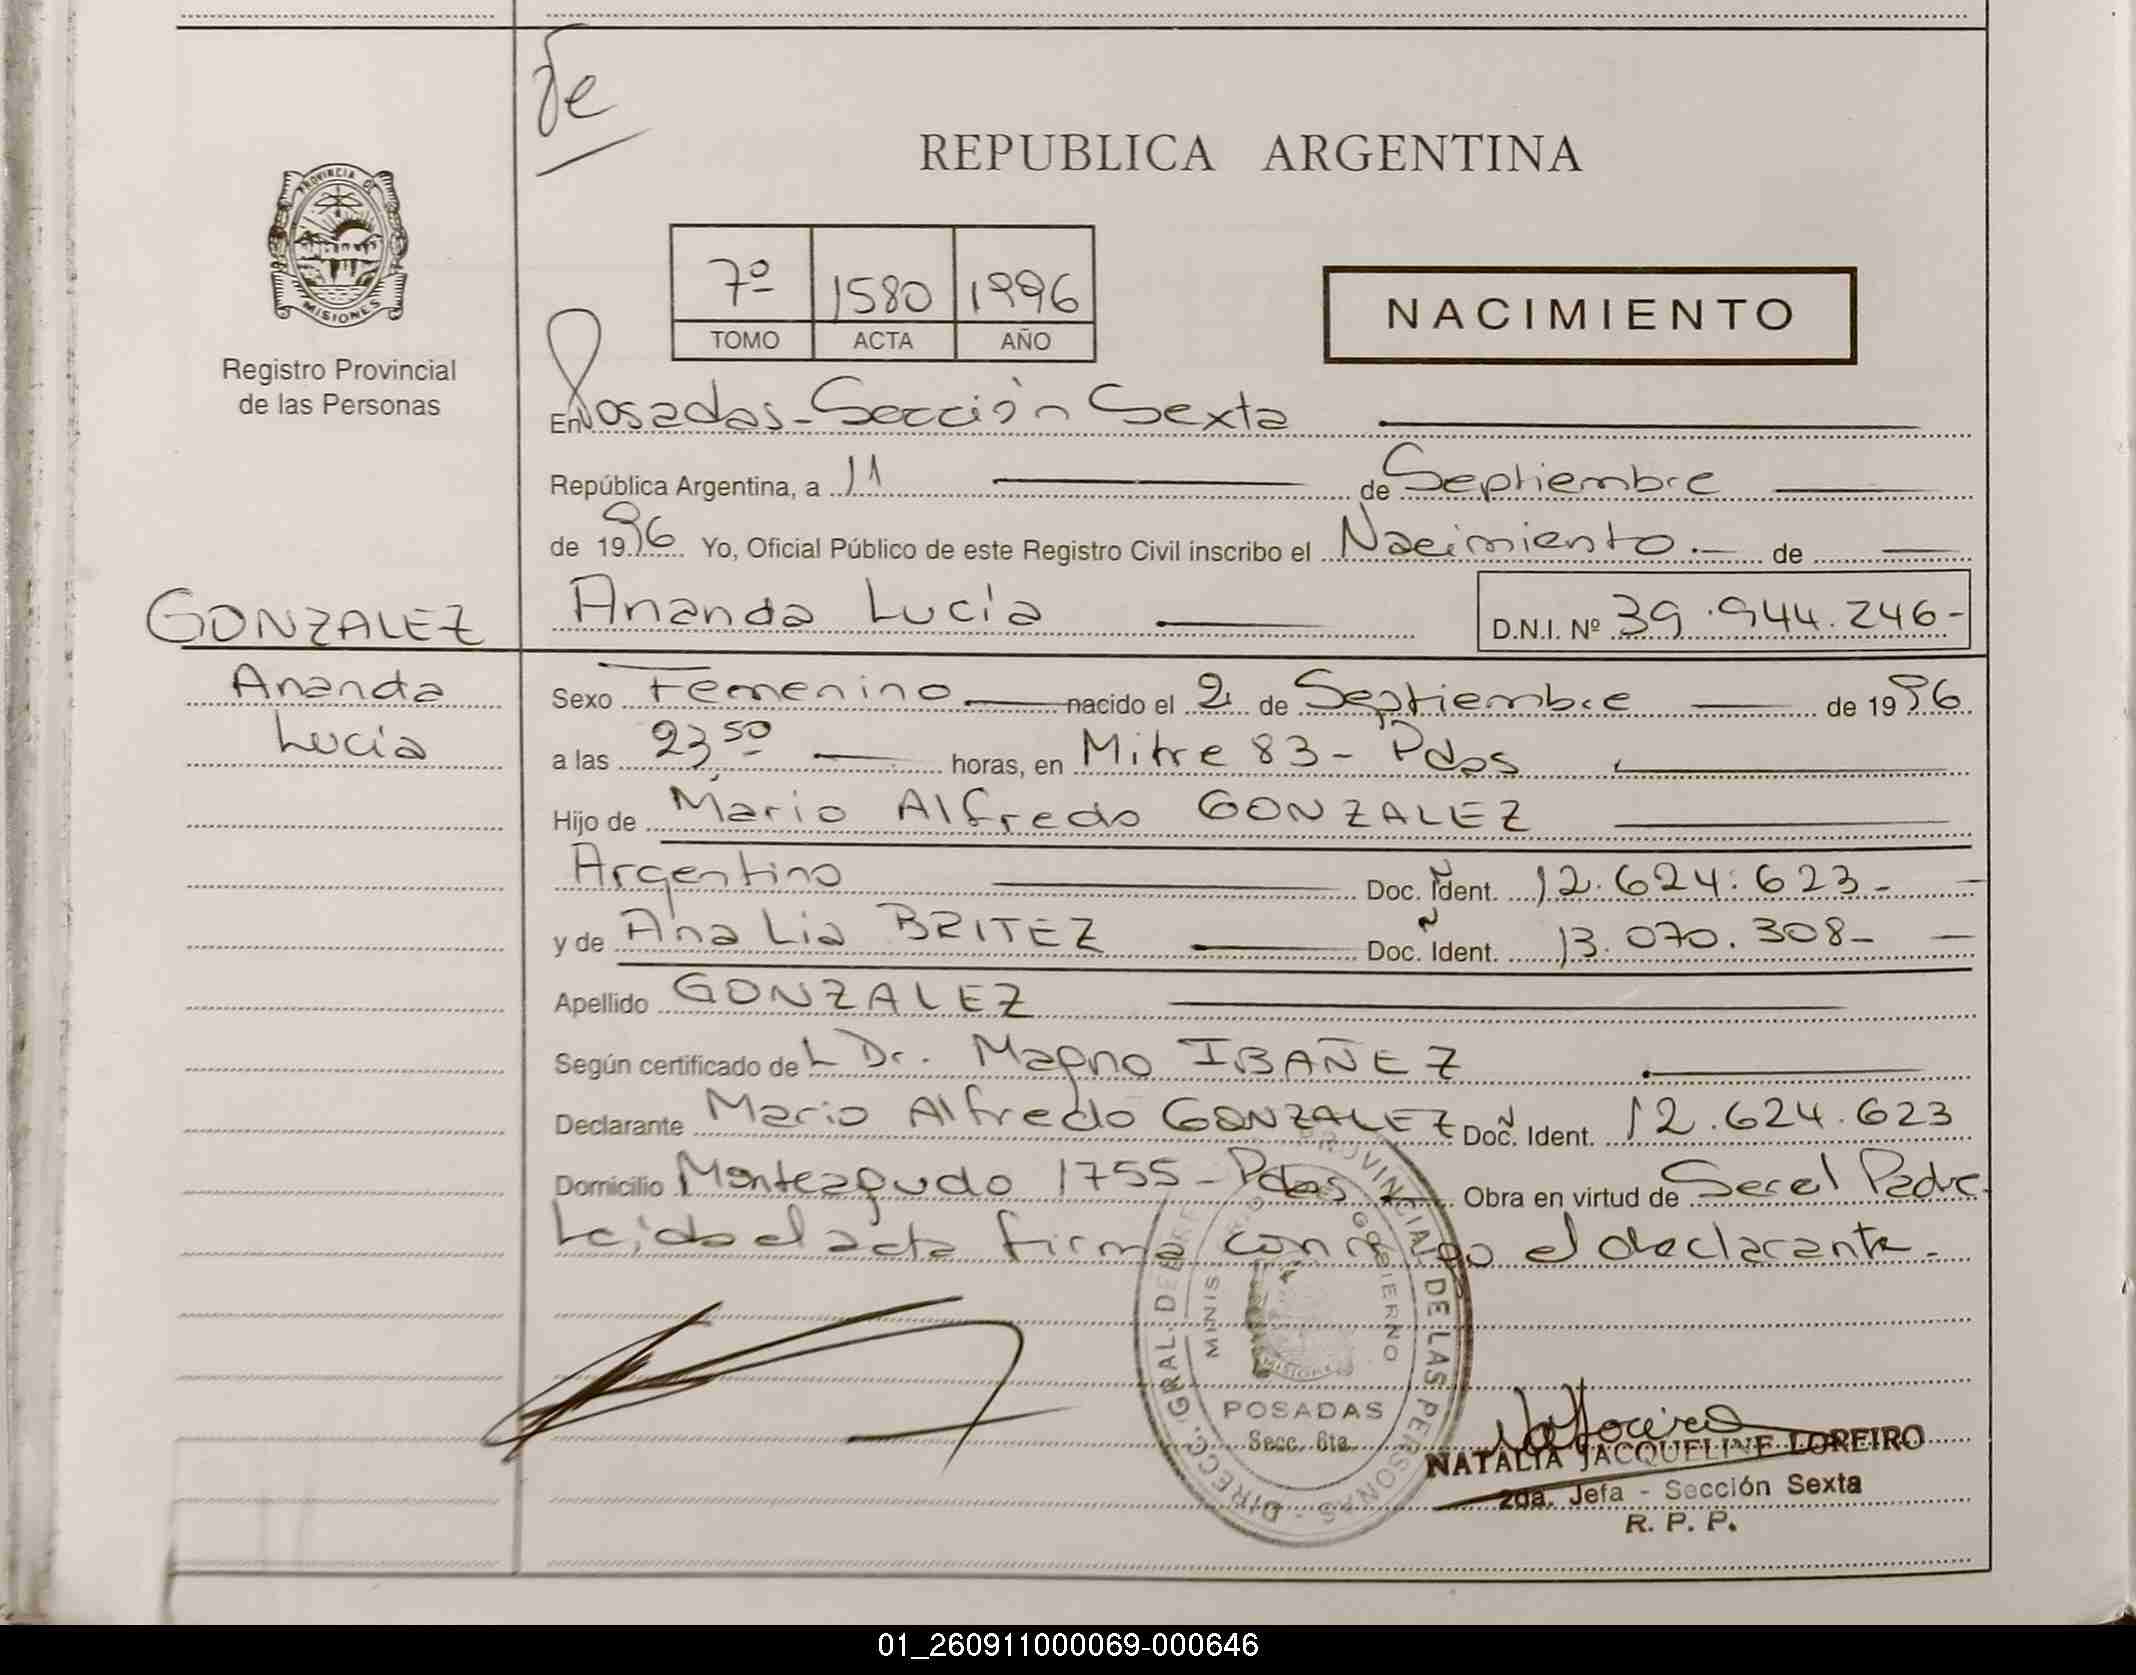 de
REPUBLICA ARGENTINA
PROVINCIA DE
MISIONES
Registro Provincial
de las Personas
7º 1580 1996
TOMO ACTA AÑO
NACIMIENTO
En Posadas - Sección Sexta
República Argentina, a 11 de Septiembre
de 1996 Yo, Oficial Público de este Registro Civil inscribo el Nacimiento.- de
Ananda Lucía D.N.I. Nº 39.944.246-
GONZALEZ
Ananda
Lucía
Sexo Femenino nacido el 2 de Septiembre de 1996
a las 23,50 horas, en Mitre 83 - Pdas
Hijo de Mario Alfredo GONZALEZ
Argentino Doc. Ident. 12.624.623-
y de Ana Lia BRITEZ Doc. Ident. 13.070.308-
Apellido GONZALEZ
Según certificado del Dr. Magno IBAÑEZ
Declarante Mario Alfredo GONZALEZ Doc. Ident. 12.624.623
Domicilio Monteagudo 1755 - Pdas Obra en virtud de Ser el Padre.
Leida el acta firma conmigo el declarante.-
DIRECC. GRAL. DEL REG. PROVINCIAL DE LAS PERSONAS
MINIS GOBIERNO
MISIONES
POSADAS
Secc. 6ta.
NATALIA JACQUELINE LOREIRO
2da. Jefa - Sección Sexta
R. P. P.
01_260911000069-000646